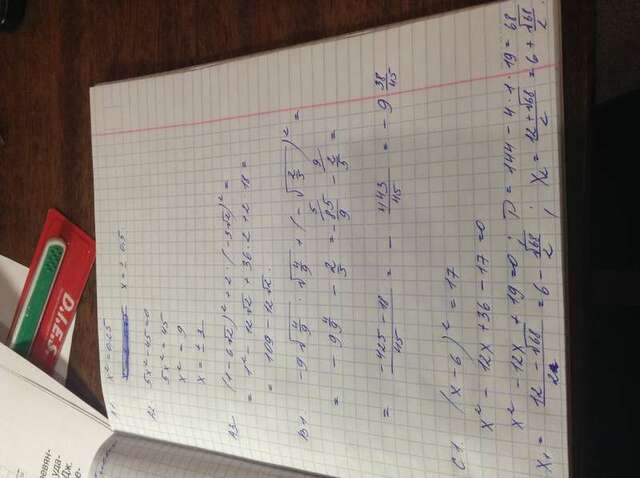 ревян-
уда-
Дж.
е-
D.I.E.S.
A1 x² = 0,25
x = ± 0,5
A2. 5x² - 45 = 0
5x² = 45
x² = 9
x = ± 3
A3 (1 - 6√2)² + 2 · (-3√2)² =
= 1² - 12√2 + 36·2 + 2·18 =
= 109 - 12√2.
B1. -9√(4/9) · √(4/9) + (-√(2/5))² =
= - 9 4/9 - 2/5 = - 85/9 - 2/5 =
= (-425 - 18)/45 = - 443/45 = - 9 38/45
C1. (x - 6)² = 17
x² - 12x + 36 - 17 = 0
x² - 12x + 19 = 0 ; D = 144 - 4·1·19 = 68
x₁ = (12 - √68)/2 = 6 - √68/2 ; x₂ = (12 + √68)/2 = 6 + √68/2.